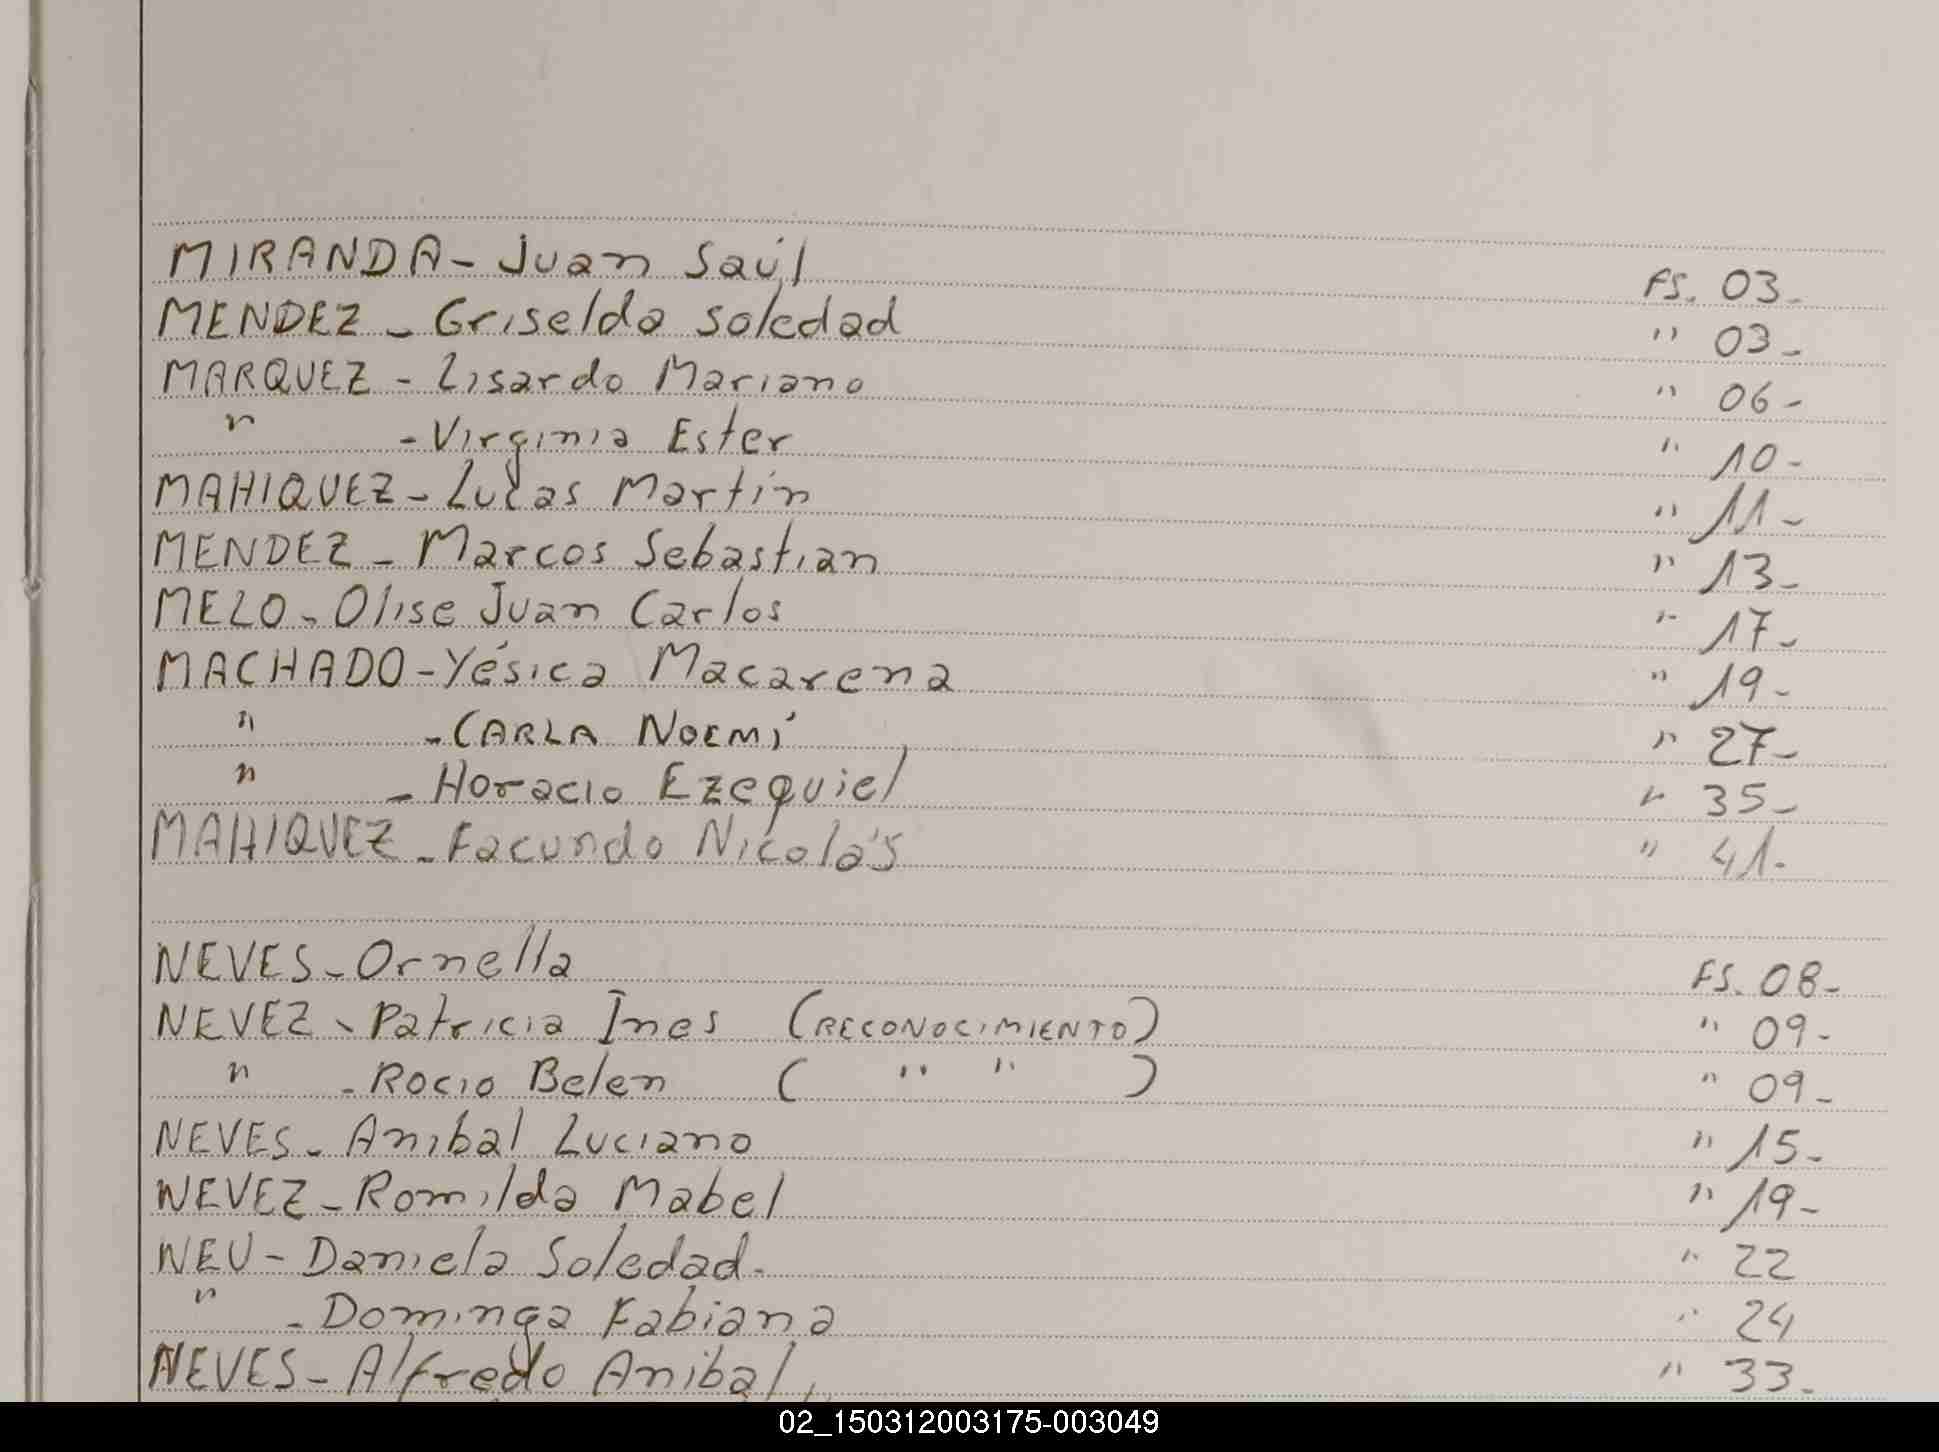 MIRANDA - Juan Saúl FS. 03-
MENDEZ - Griselda Soledad " 03-
MARQUEZ - Lisardo Mariano " 06-
" - Virginia Ester " 10-
MAHIQUEZ - Lucas Martín " 11-
MENDEZ - Marcos Sebastian " 13-
MELO - Olise Juan Carlos " 17-
MACHADO - Yésica Macarena " 19-
" - CARLA NOEMí " 27-
" - Horacio Ezequiel " 35-
MAHIQUEZ - Facundo Nicolás " 41-
NEVES - Ornella FS. 08-
NEVEZ - Patricia Ines (RECONOCIMIENTO) " 09-
" - Rocio Belen ( " " ) " 09-
NEVES - Anibal Luciano " 15-
NEVEZ - Romilda Mabel " 19-
NEU - Daniela Soledad - " 22
" - Dominga Fabiana " 24
NEVES - Alfredo Anibal " 33-
02_150312003175-003049